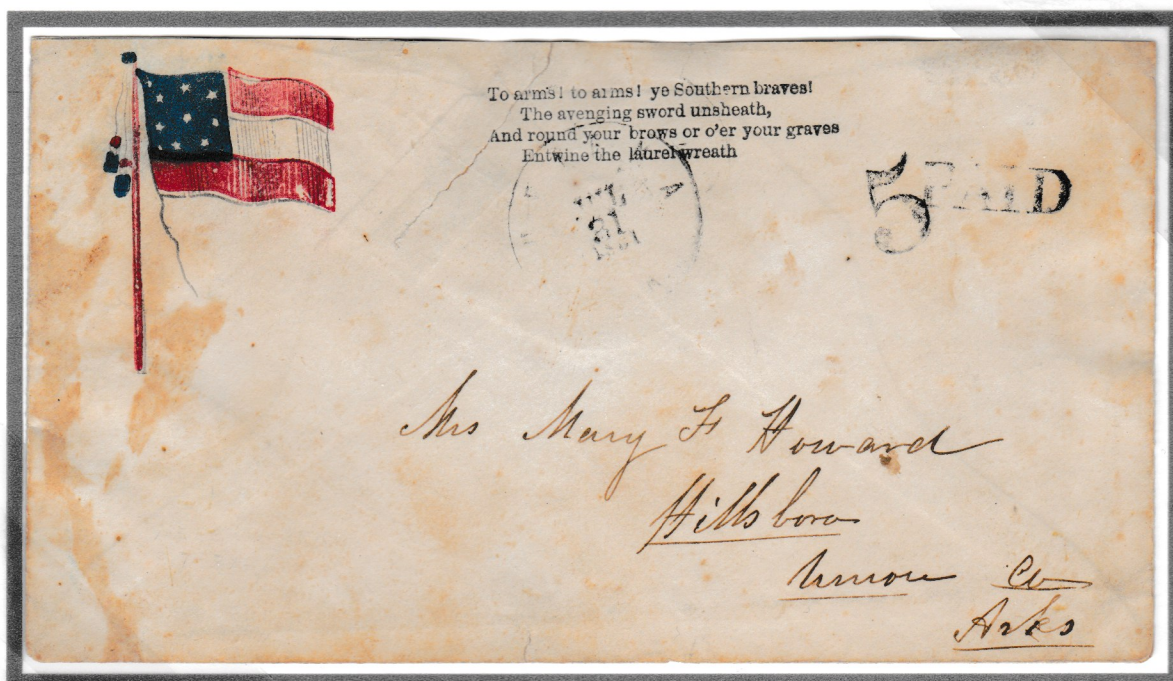 To arms! to arms! ye Southern braves!
The avenging sword unsheath,
And round your brows or o'er your graves
Entwine the laurel wreath
JUL
21
1861
5 PAID
Mrs Mary F Howard
Hillsboro
Union Co
Arks